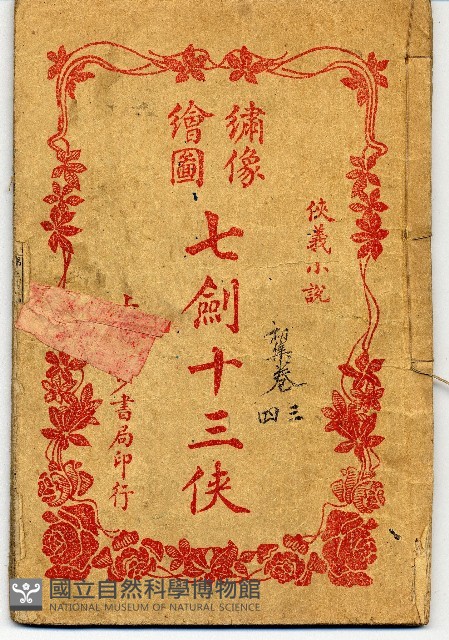 俠義小說
繡像
繪圖
七劍十三俠
初集卷
三
四
上
書局印行
國立自然科學博物館
NATIONAL MUSEUM OF NATURAL SCIENCE